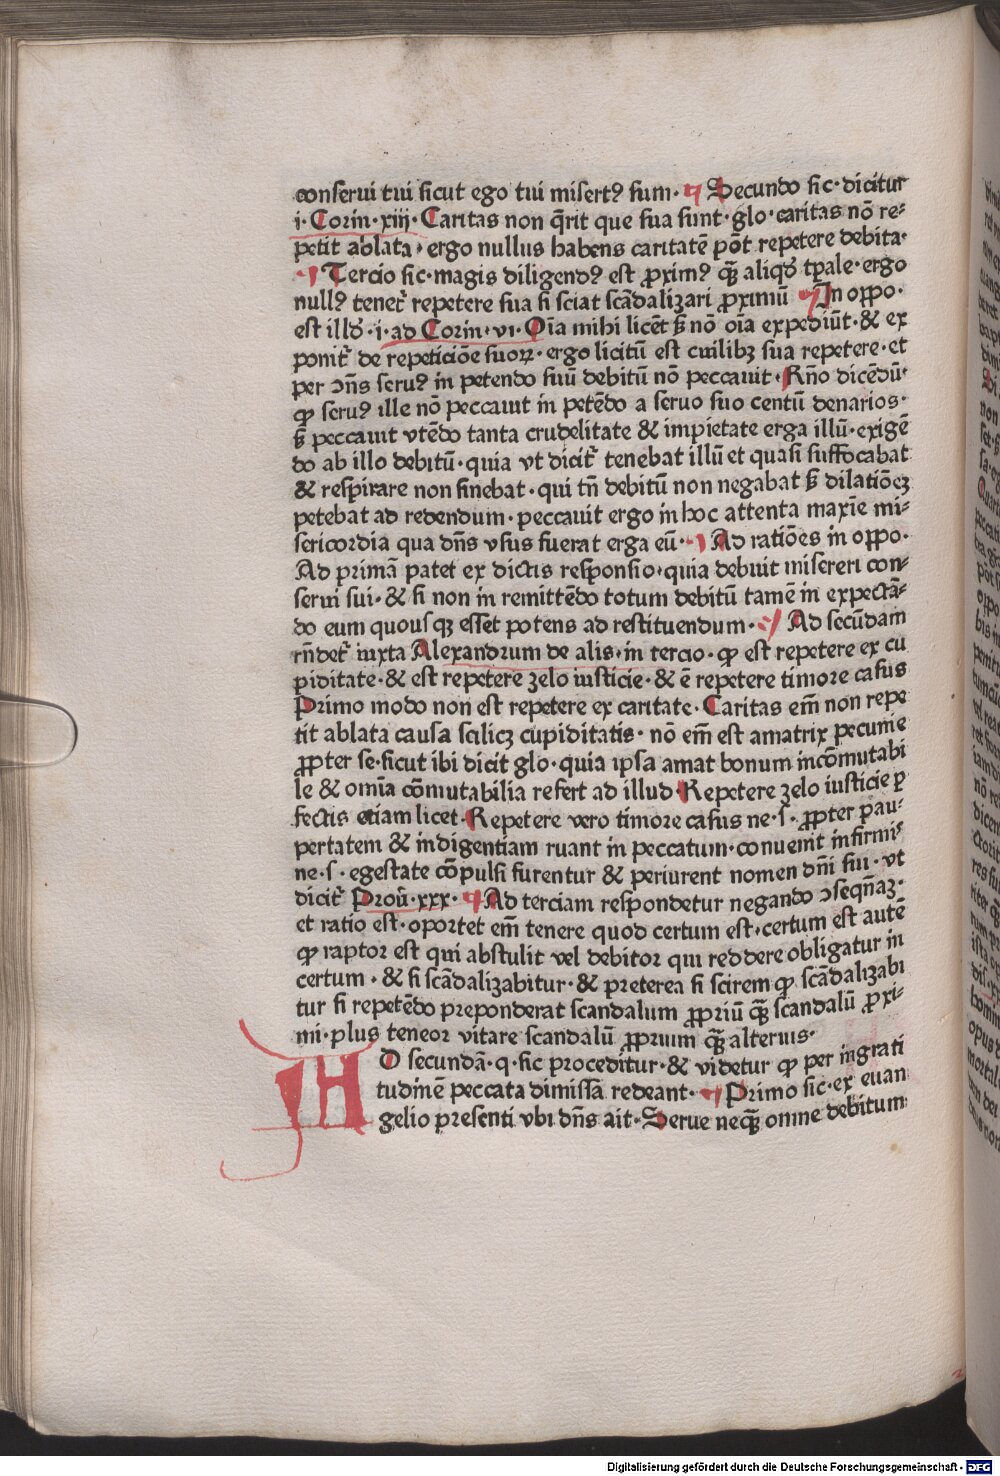 conserui tui sicut ego tui misertꝰ sum· ¶ Secundo sic· dicitur
i· Corin· xiij· Caritas non q̄rit que sua sunt· glo· caritas nō re⸗
petit ablata· ergo nullus habens caritatē pōt repetere debita·
¶ Tercio sic· magis diligendꝰ est ꝓximꝰ qꝫ̄ aliqđ tꝑale· ergo
nullꝰ tenet̄ repetere sua si sciat scādalizari ꝓximū ¶ In oꝓpo·
est illđ· i· ad Corin· vi· Oīa mihi licēt sꝫ nō oīa expediūt· & ex
ponit̄ de repeticiōe suoꝝ· ergo licitū est cuilibꝫ sua repetere· et
per ↄn̄s seruꝰ in petendo suū debitū nō peccauit· Rn̄o dicēdū·
ꝙ seruꝰ ille nō peccauit in petēdo a seruo suo centū denarios·
sꝫ peccauit vtēdo tanta crudelitate & impietate erga illū· exigē
do ab illo debitū· quia vt dicit̄ tenebat illū et quasi suffocabat
& respirare non sinebat· qui tn̄ debitū non negabat sꝫ dilatiōeꝫ
petebat ad redendum· peccauit ergo in hoc attenta maxīe mi⸗
sericordia qua dn̄s vsus fuerat erga eū· ¶ Ad ratiōes in oꝓpo·
Ad primā patet ex dictis responsio· quia debuit misereri con⸗
serui sui· & si non in remittēdo totum debitū tamē in expectā⸗
do eum quousqꝫ esset potens ad restituendum· ¶ Ad secūdam
rn̄det̄ iuxta Alexandrum de alis· in tercio· ꝙ est repetere ex cu
piditate· & est repetere zelo iusticie· & ē repetere timore casus
Primo modo non est repetere ex caritate· Caritas em̄ non repe
tit ablata causa scilicꝫ cupiditatis· nō em̄ est amatrix pecunie
ꝓpter se· sicut ibi dicit glo· quia ipsa amat bonum incōmutabi
le & omīa cōmutabilia refert ad illud· Repetere zelo iusticie ꝑ
fectis etiam licet· Repetere vero timore casus ne· s· ꝓpter pau⸗
pertatem & indigentiam ruant in peccatum· conuenit infirmis
ne· s· egestate cōpulsi furentur & periurent nomen dn̄i sui· vt
dicit̄ Prou̅· xxx· ¶ Ad terciam respondetur negando ↄseqn̄aꝫ·
et ratio est· oportet em̄ tenere quod certum est· certum est autē
ꝙ raptor est qui abstulit vel debitor qui reddere obligatur in
certum· & si scādalizabitur· & preterea si scirem ꝙ scādalizabi
tur si repetēdo preponderat scandalum ꝓpriū qꝫ̄ scandalū ꝓxi⸗
mi· plus teneor vitare scandalū ꝓprium qꝫ̄ alterius·
AD secundā· q· sic proceditur· & videtur ꝙ per ingrati
tudinē peccata dimissa redeant· ¶ Primo sic· ex euan
gelio presenti vbi dn̄s ait· Serue neqꝫ̄ omne debitum
Digitalisierung gefördert durch die Deutsche Forschungsgemeinschaft - DFG